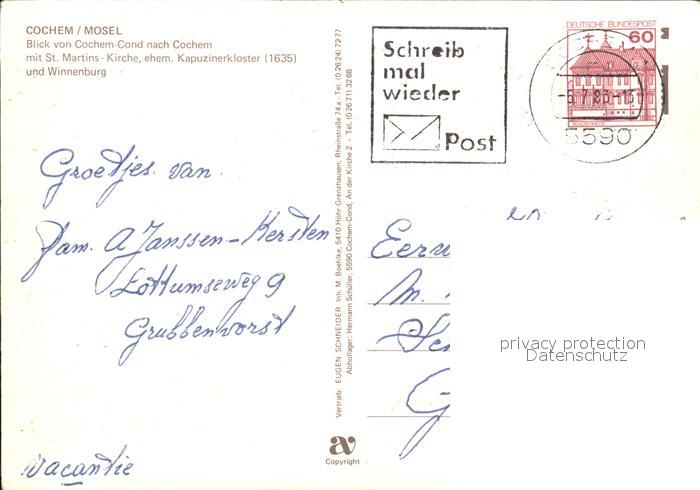 COCHEM / MOSEL
Blick von Cochem-Cond nach Cochem
mit St. Martins-Kirche, ehem. Kapuzinerkloster (1635)
und Winnenburg
Schreib
mal
wieder
Post
DEUTSCHE BUNDESPOST
60
5590
Groetjes van
Fam. A Janssen-Kersten
Lottumseweg 9
Grubbenvorst
vacantie
Vertrieb: EUGEN SCHNEIDER Inh. M. Boehlke, 5410 Höhr-Grenzhausen, Rheinstraße 74a - Tel. (0 26 24) 72 77
Abhollager: Hermann Schüller, 5590 Cochem-Cond, An der Kirche 2 - Tel. (0 26 71) 32 68
av
Copyright
privacy protection
Datenschutz